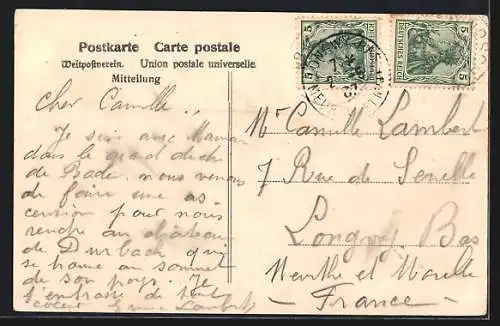 Postkarte Carte postale
Weltpostverein. Union postale universelle.
Mitteilung
DEUTSCHES REICH
5 5
5 5
Cher Camille
Je suis avec Maman
dans le grand duché
de Bade. nous venons
de faire une as-
cension pour nous
rendre au château
de Durbach qui
se trouve au sommet
de son pays. Je
t'embrasse de tout
coeur
Mr Camille Lambert
7 Rue de
Longwy Bas
Meurthe et Moselle
France